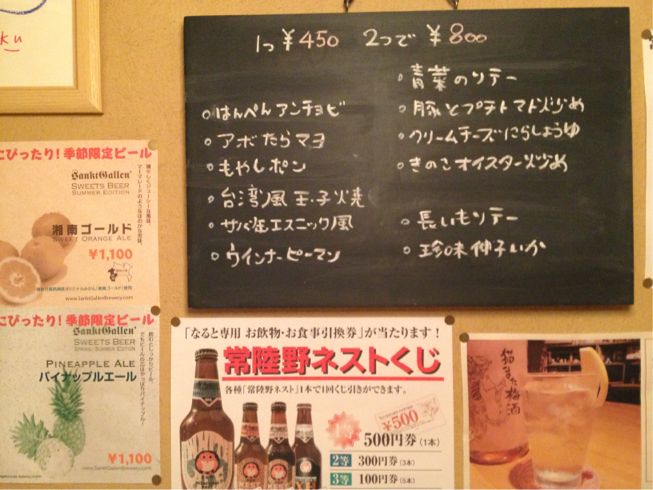 ku
1つ ¥450 2つで ¥800
。はんぺんアンチョビ
。アボたらマヨ
。もやしポン
。台湾風玉子焼
。サバ缶エスニック風
。ウインナーピーマン
。青菜のソテー
。豚とプチトマト炒め
。クリームチーズにらしょうゆ
。きのこオイスター炒め
。長いもソテー
。珍味 伸子いか
にぴったり!季節限定ビール
SanktGallen
SWEETS BEER
SUMMER EDITION
湘南ゴールド
SWEET ORANGE ALE
¥1,100
www.SanktGallenBrewery.com
にぴったり!季節限定ビール
SanktGallen
SWEETS BEER
SPRING, SUMMER EDITION
PINEAPPLE ALE
パイナップルエール
¥1,100
www.SanktGallenBrewery.com
「なると専用 お飲物・お食事引換券」が当たります!
常陸野ネストくじ
各種「常陸野ネスト」1本で1回くじ引きができます。
¥500
1等 500円券(1本)
2等 300円券(3本)
3等 100円券(5本)
猫また梅酒